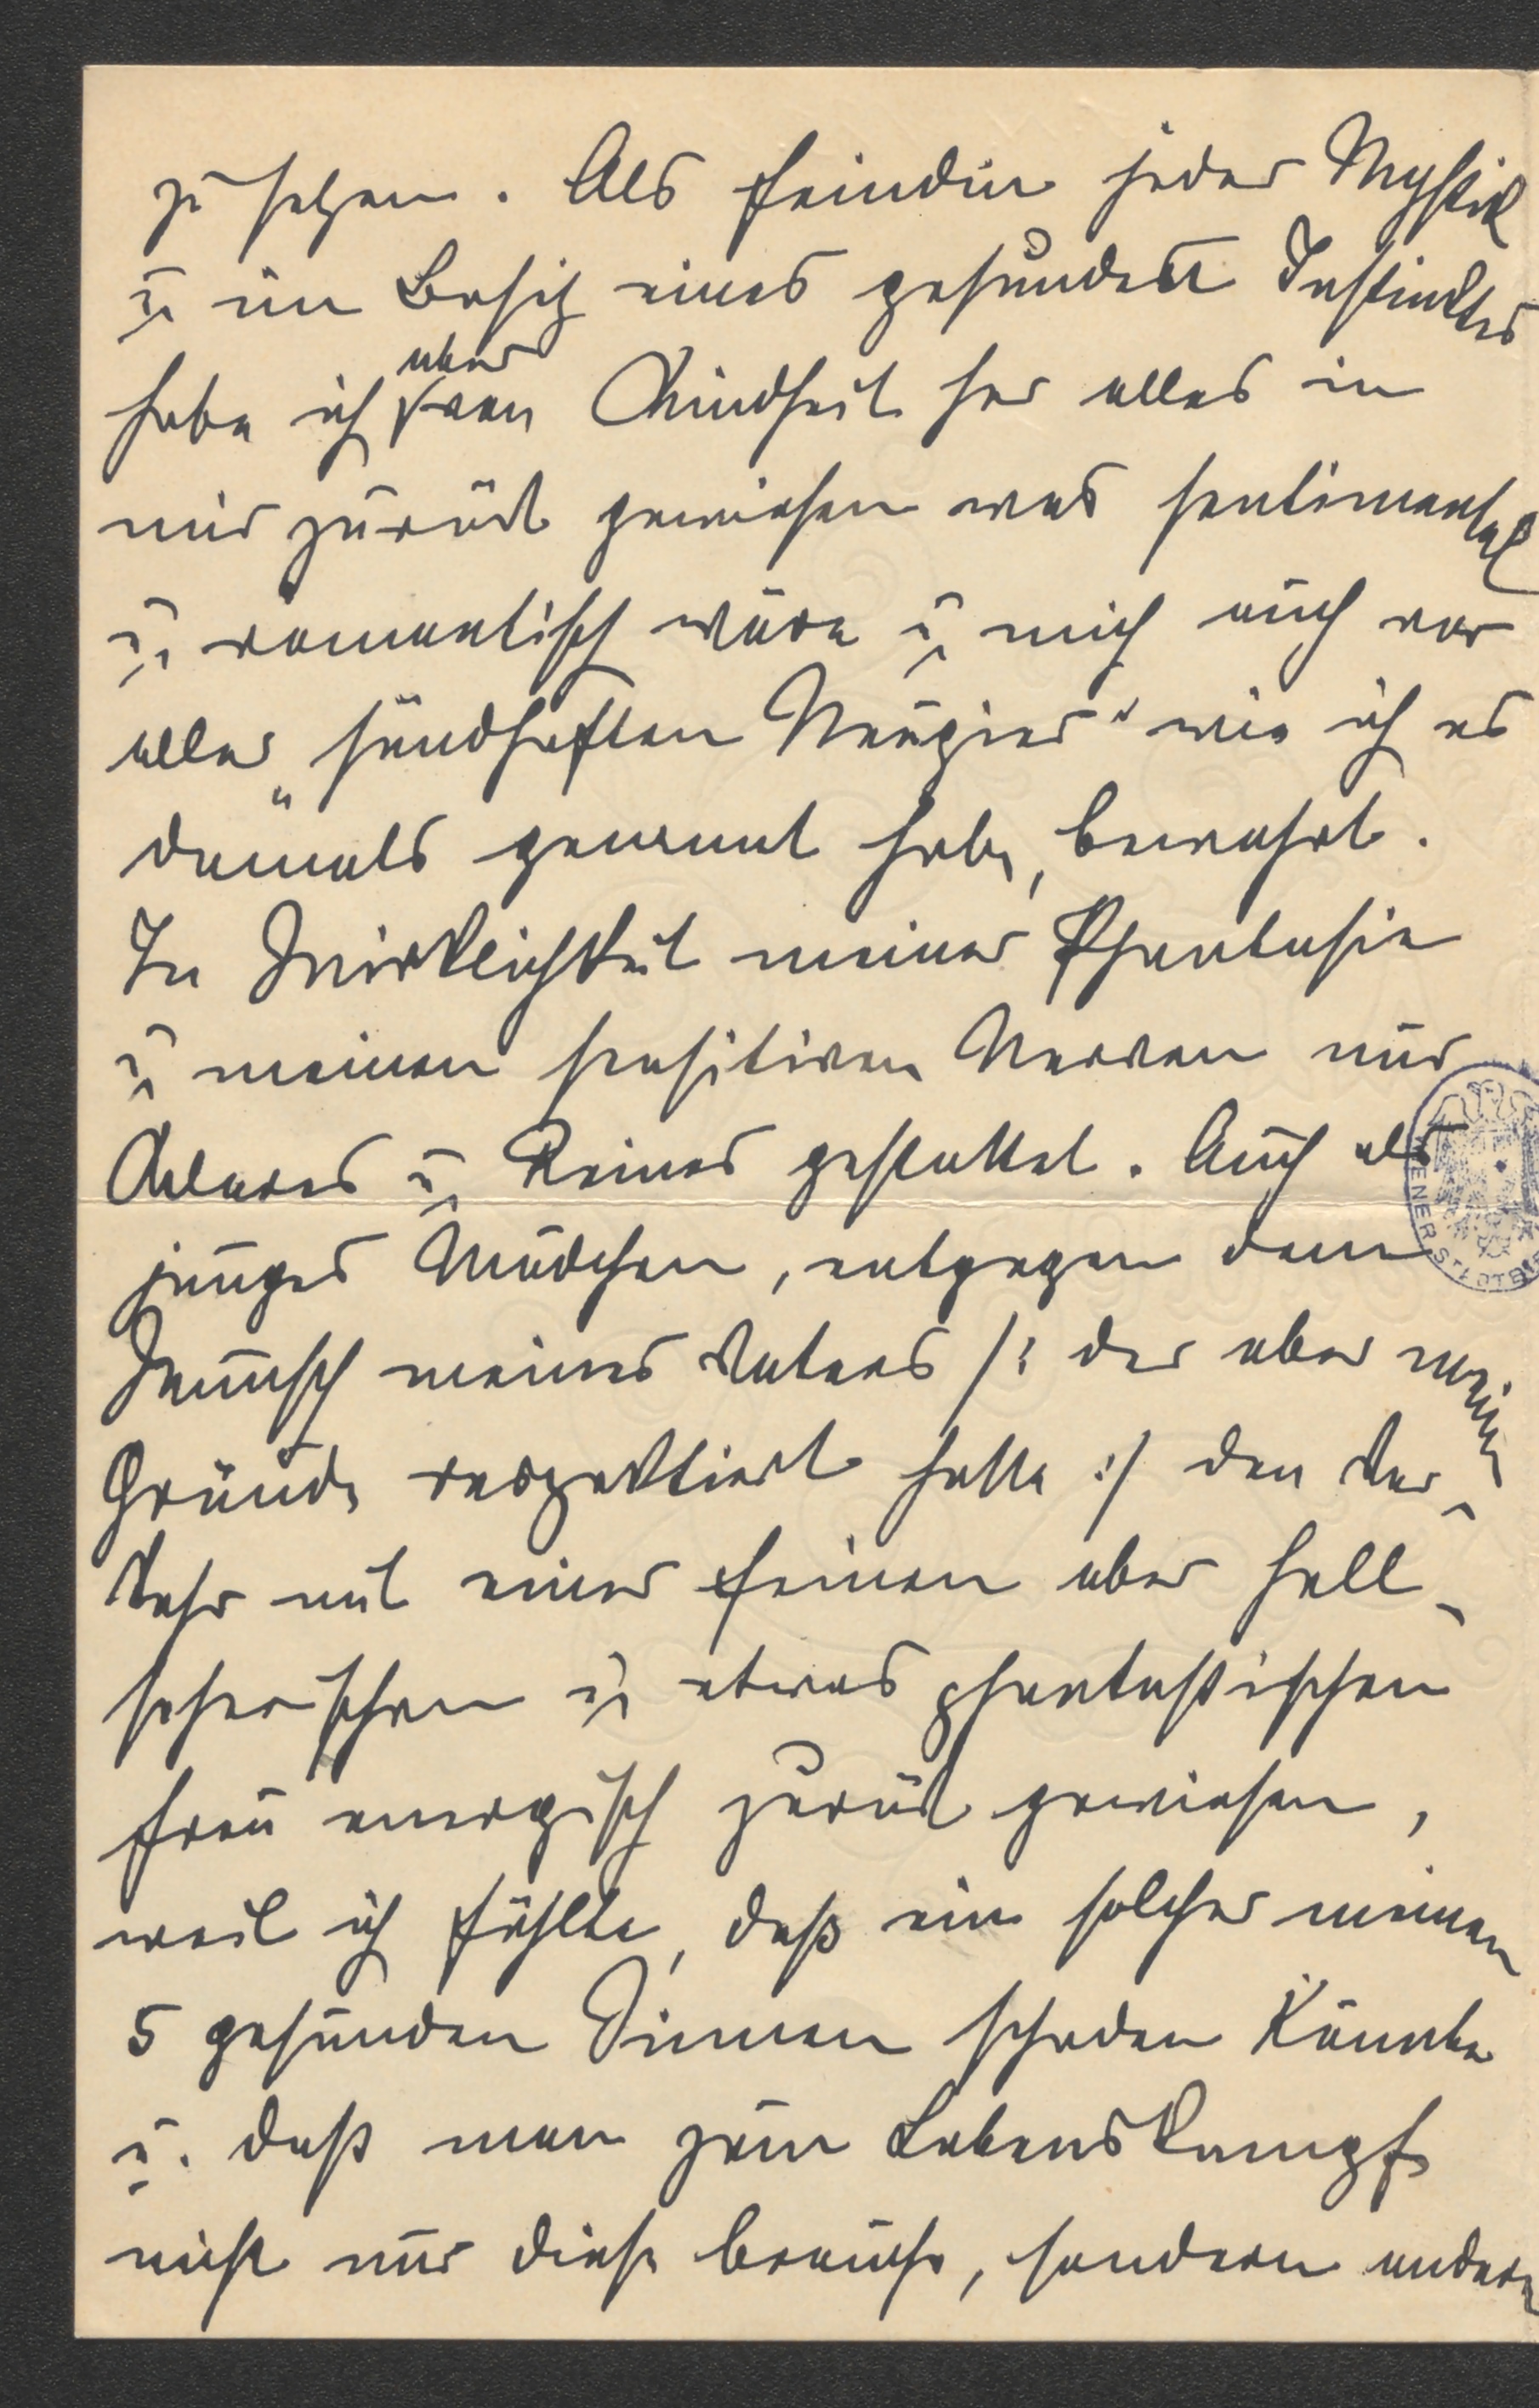 zu sehen. Als Feindin jeder Mystik
u. im Besitz eines gesunden Instinktes
habe ich aber von Kindheit her alles in
mir zurück gewiesen was sentimental
u. romantisch wäre u. mich auch vor
aller „sündhaften Neugier“ wie ich es
damals genannt habe, bewahrt.
In Wirklichkeit meiner Phantasie
u. meinen sensitiven Nerven nur
Klares u. Reines gestattet. Auch als
junges Mädchen, entgegen dem
Wunsch meines Vaters /: der aber meine
Gründe respektiert hatte :/ den Ver-
kehr mit einer feinen aber hell-
seherischen u. etwas phantastischen
Frau energisch zurück gewiesen,
weil ich fühlte, daß ein solcher meinen
5 gesunden Sinnen schaden könnte
u. daß man zum Lebenskampf
nicht nur diese brauche, sondern andere
ENER STADTBI